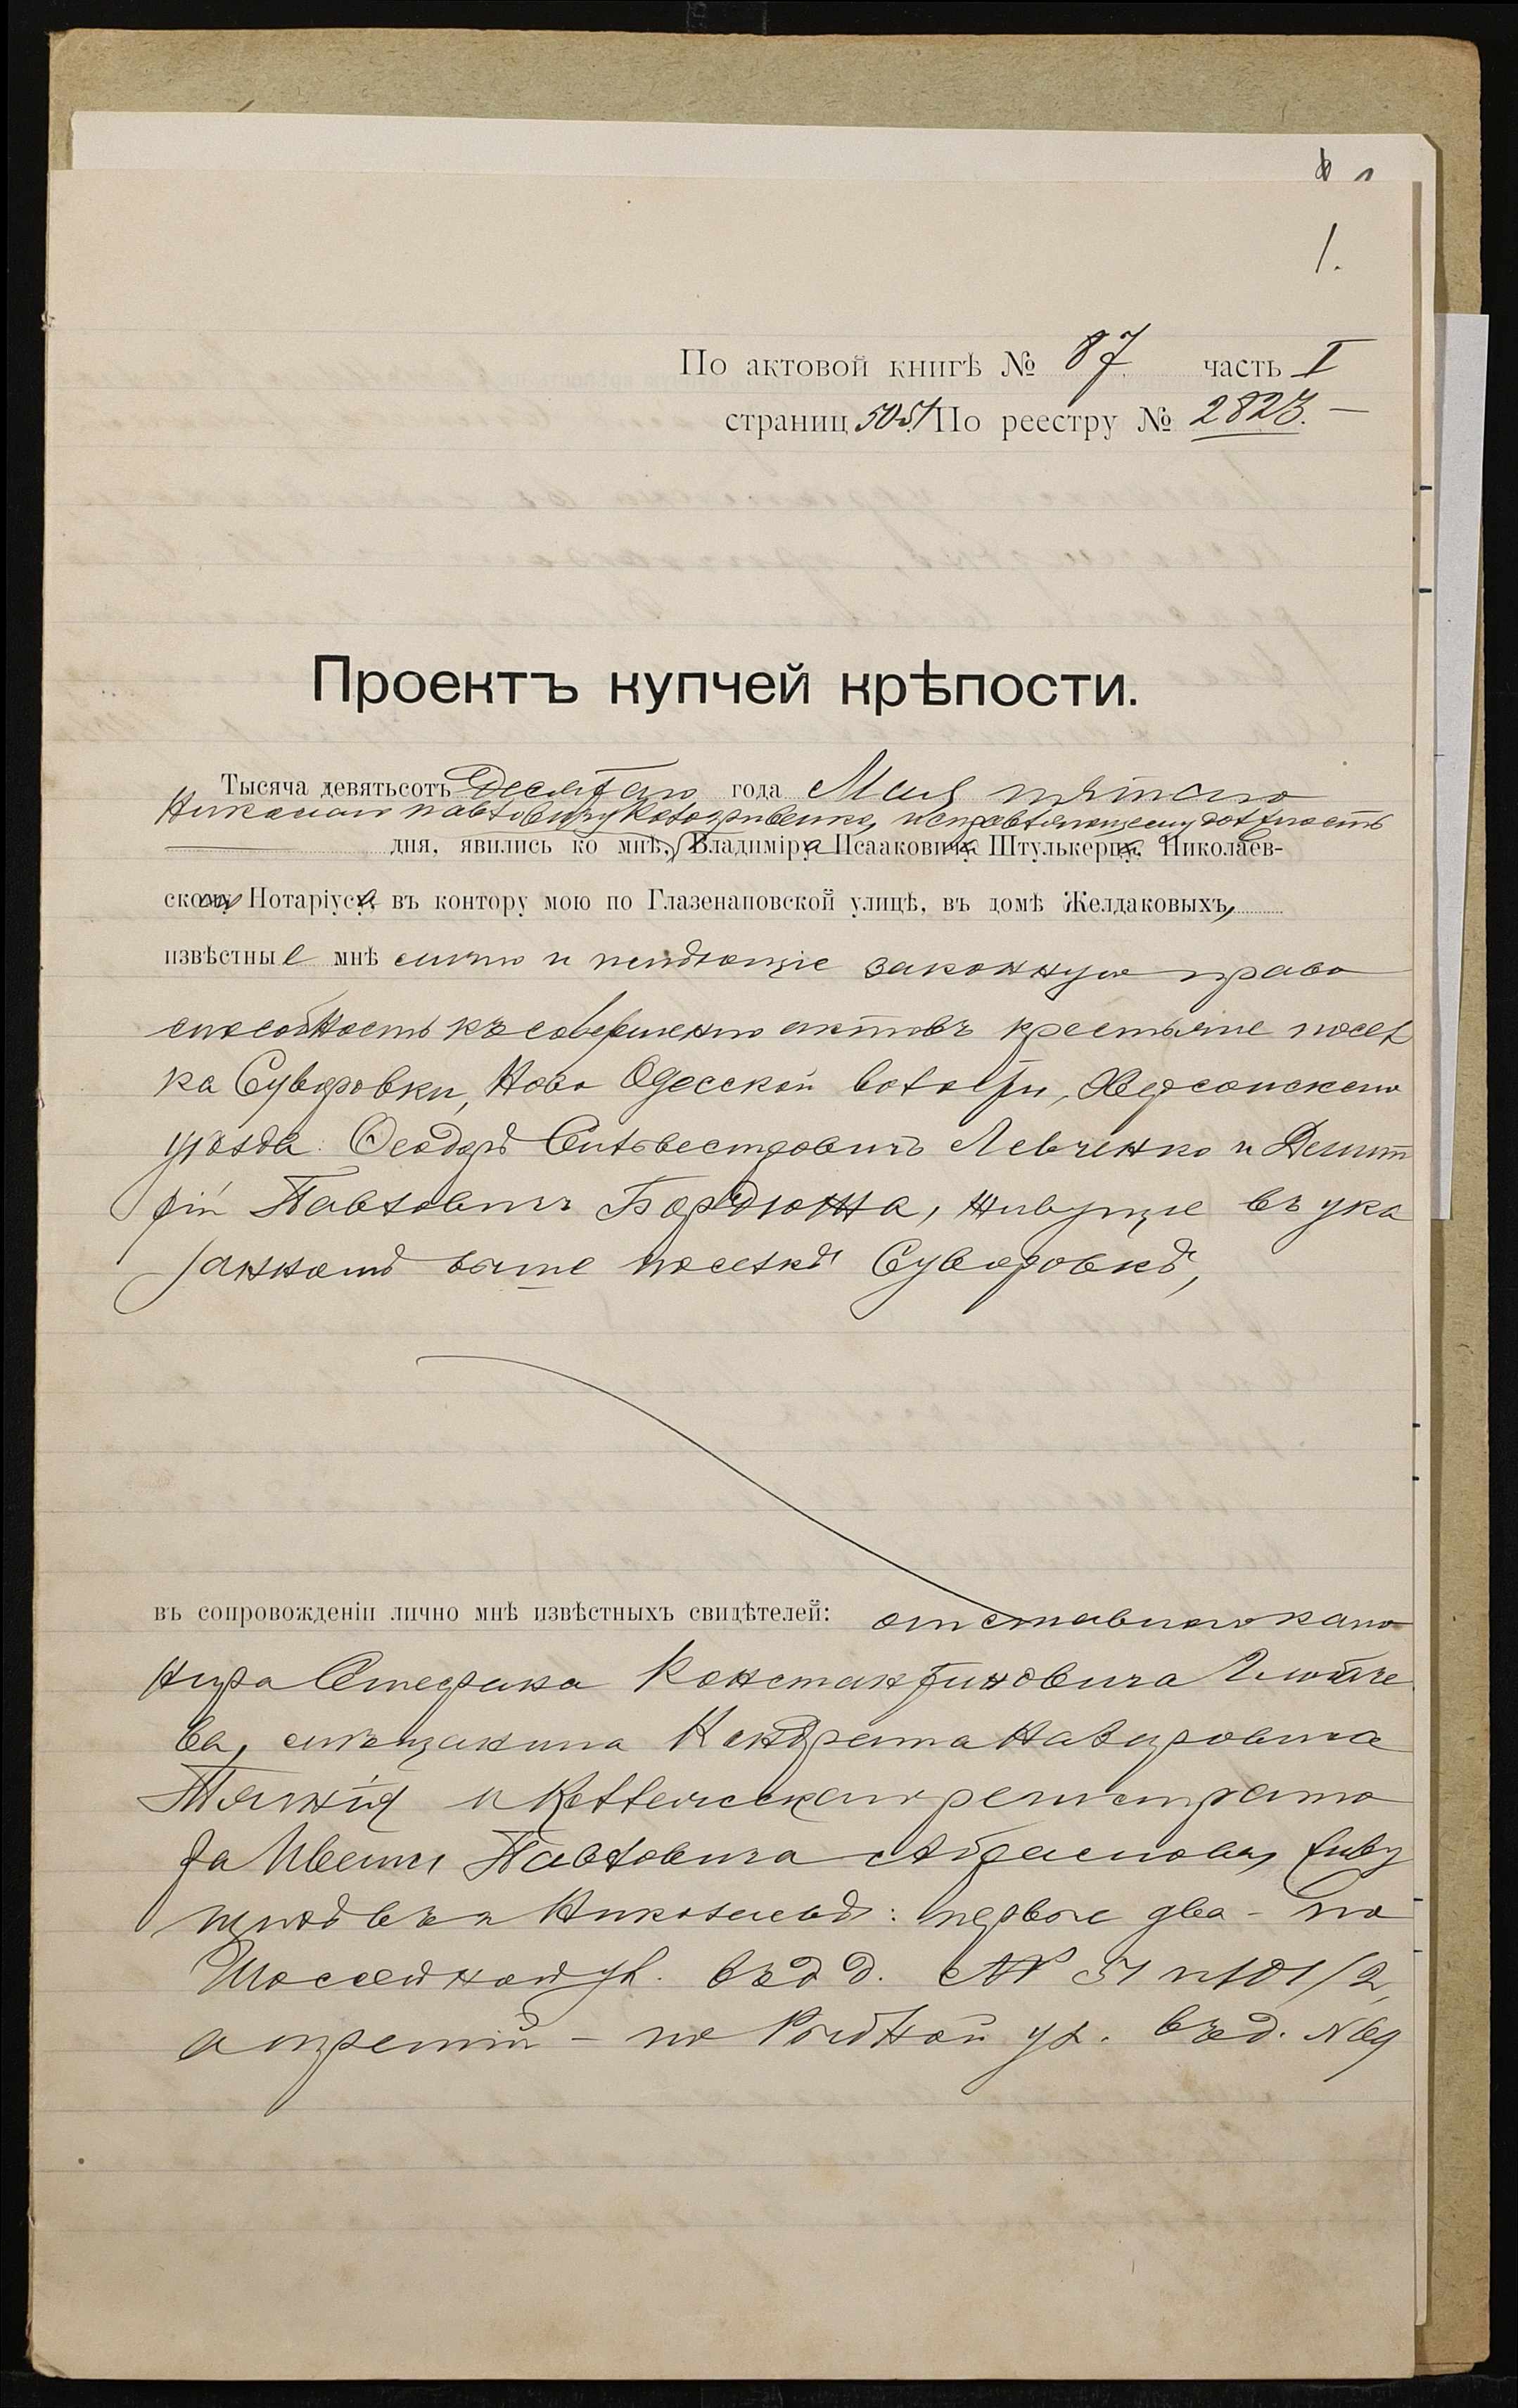 1.
По актовой книгѣ № 87 часть I
страниц 50-51 По реестру № 2823. —
Проектъ купчей крѣпости.
Тысяча девятьсотъ Десятаго года Мая пятаго
Николаю Павловичу исправляющему должность
дня, явились ко мнѣ, Владиміра Исааковича Штулькерца, Николаев-
скаго Нотаріуса, въ контору мою по Глазенаповской улицѣ, въ домѣ Желдаковыхъ,
извѣстные мнѣ лично и имѣющіе законную право
способность къ совершенію актовъ крестьяне посел
ка Суворовки, Ново Одесской волости, Херсонскаго
уѣзда: Ѳеодоръ Сильвестровичъ Левченко и Димит
рій Павловичъ Бордюжа, живущіе въ ука
занномъ выше поселкѣ Суворовкѣ,
въ сопровожденіи лично мнѣ извѣстныхъ свидѣтелей: отставного кано
нира Стефана Константиновича
ва, мѣщанина Кондрата
и Коллежскаго регистрато
ра Ивана Павловича живу
щихъ въ г. Николаевѣ: первые два - по
Шоссейной ул. въ д. д. № 51 и 101/2,
а третій - по Рыбной ул. въ д. №